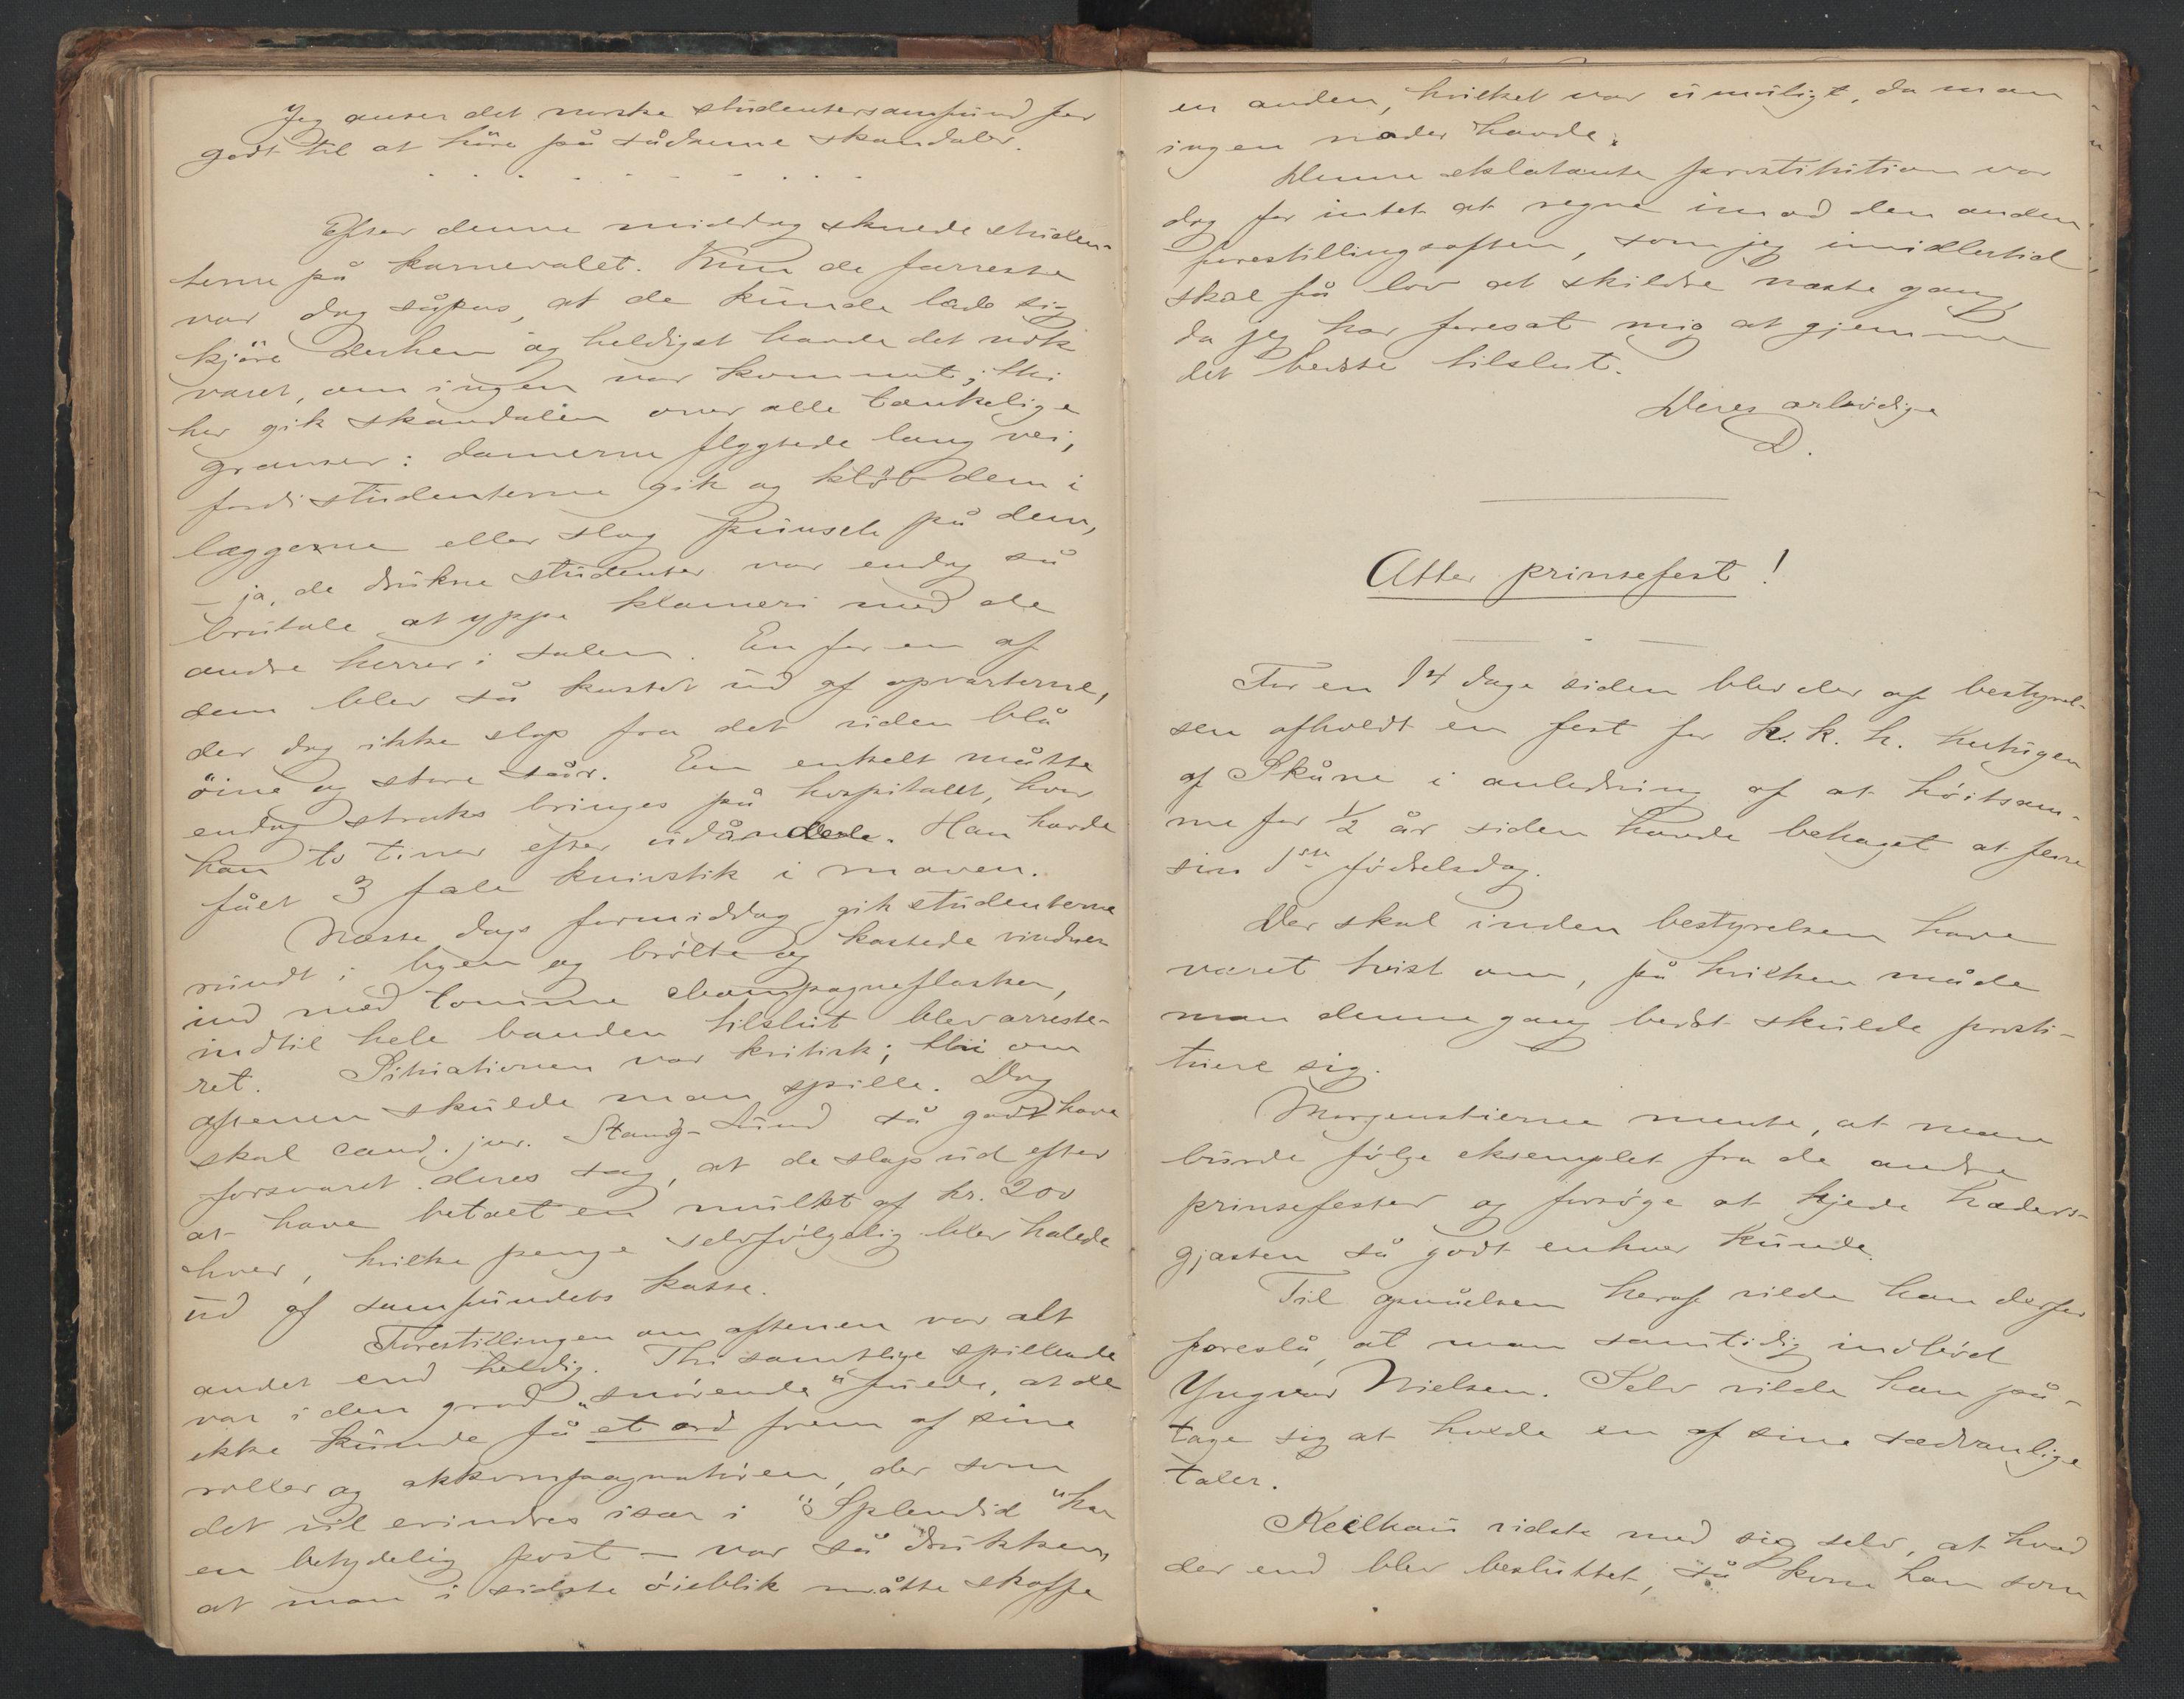 Jeg anser det norske studentersamfund for
godt til at høre på sådanne skandaler.
. . . . . . . . .
Efter denne middag skuede studen-
terne på karnevalet. Kun de færreste
var dog såpas, at de kunde lade sig
kjøre derhen og heldigst havde det nok
været, om ingen var kommet; thi
her gik skandalen over alle tænkelige
grænser: damerne flygtede lang vei,
fordi studenterne gik og kløb dem i
læggerne eller slog punsch på dem,
– ja, de drukne studenter var endog så
brutale at yppe klameri med de
andre herrer i salen. En for en af
dem blev så kastet ud af opvarterne,
der dog ikke slap fra det uden blå
øine og store sår. En enkelt måtte
endog straks bringes på hospitalet, hvor
han to timer efter udåndede. Han havde
fået 3 fæle knivstik i maven.
Næste dags formiddag gik studenterne
rundt i byen og brølte og kastede vinduer
ind med tomme champagneflasker,
indtil hele banden tilslut blev arreste-
ret. Situationen var kritisk; thi om
aftenen skulde man spille. Dog
skal cand. jur. Stang-Lund så godt have
forsvaret deres sag, at de slap ud efter
at have betalt en mulkt af kr. 200
hver, hvilke penge selvfølgelig blev halede
ud af samfundets kasse.
Forestillingen om aftenen var alt
andet end heldig. Thi samtlige spillende
var i den grad „snøvende“ fulde, at de
ikke kunde få et ord frem af sine
roller og akkompagnatøren, der som
det vil erindres især i "Splendid" har
en betydelig post – var så drukken,
at man i sidste øieblik måtte skaffe
en anden, hvilket var umuligt, da man
ingen noder havde.
Denne eklatante prostitution var
dog for intet at regne imod den anden
forestillingsaften, som jeg imidlertid
skal få lov at skildre næste gang,
da jeg har foresat mig at gjemme
det bedste tilslut.
Deres ærbødige
D.
Atter prinsefest!
For en 14 dage siden blev der af bestyrel-
sen afholdt en fest for h. k. h. hertugen
af Skåne i anledning af at høitsam-
me for 1/2 år siden havde behaget at feire
sin 1ste fødselsdag.
Der skal inden bestyrelsen have
været tvist om, på hvilken måde
man denne gang bedst skulde prosti-
tuere sig.
Morgenstierne mente, at man
burde følge eksemplet fra de andre
prinsefester og forsøge at kjede hæders-
gjæsten så godt enhver kunde.
Til opnåelsen heraf vilde han derfor
foreslå, at man samtidig indbød
Yngvar Nielsen. Selv vilde han på-
tage sig at holde en af sine sædvanlige
taler.
Keilhau vidste med sig selv, at hvad
der end blev besluttet, så kom han som